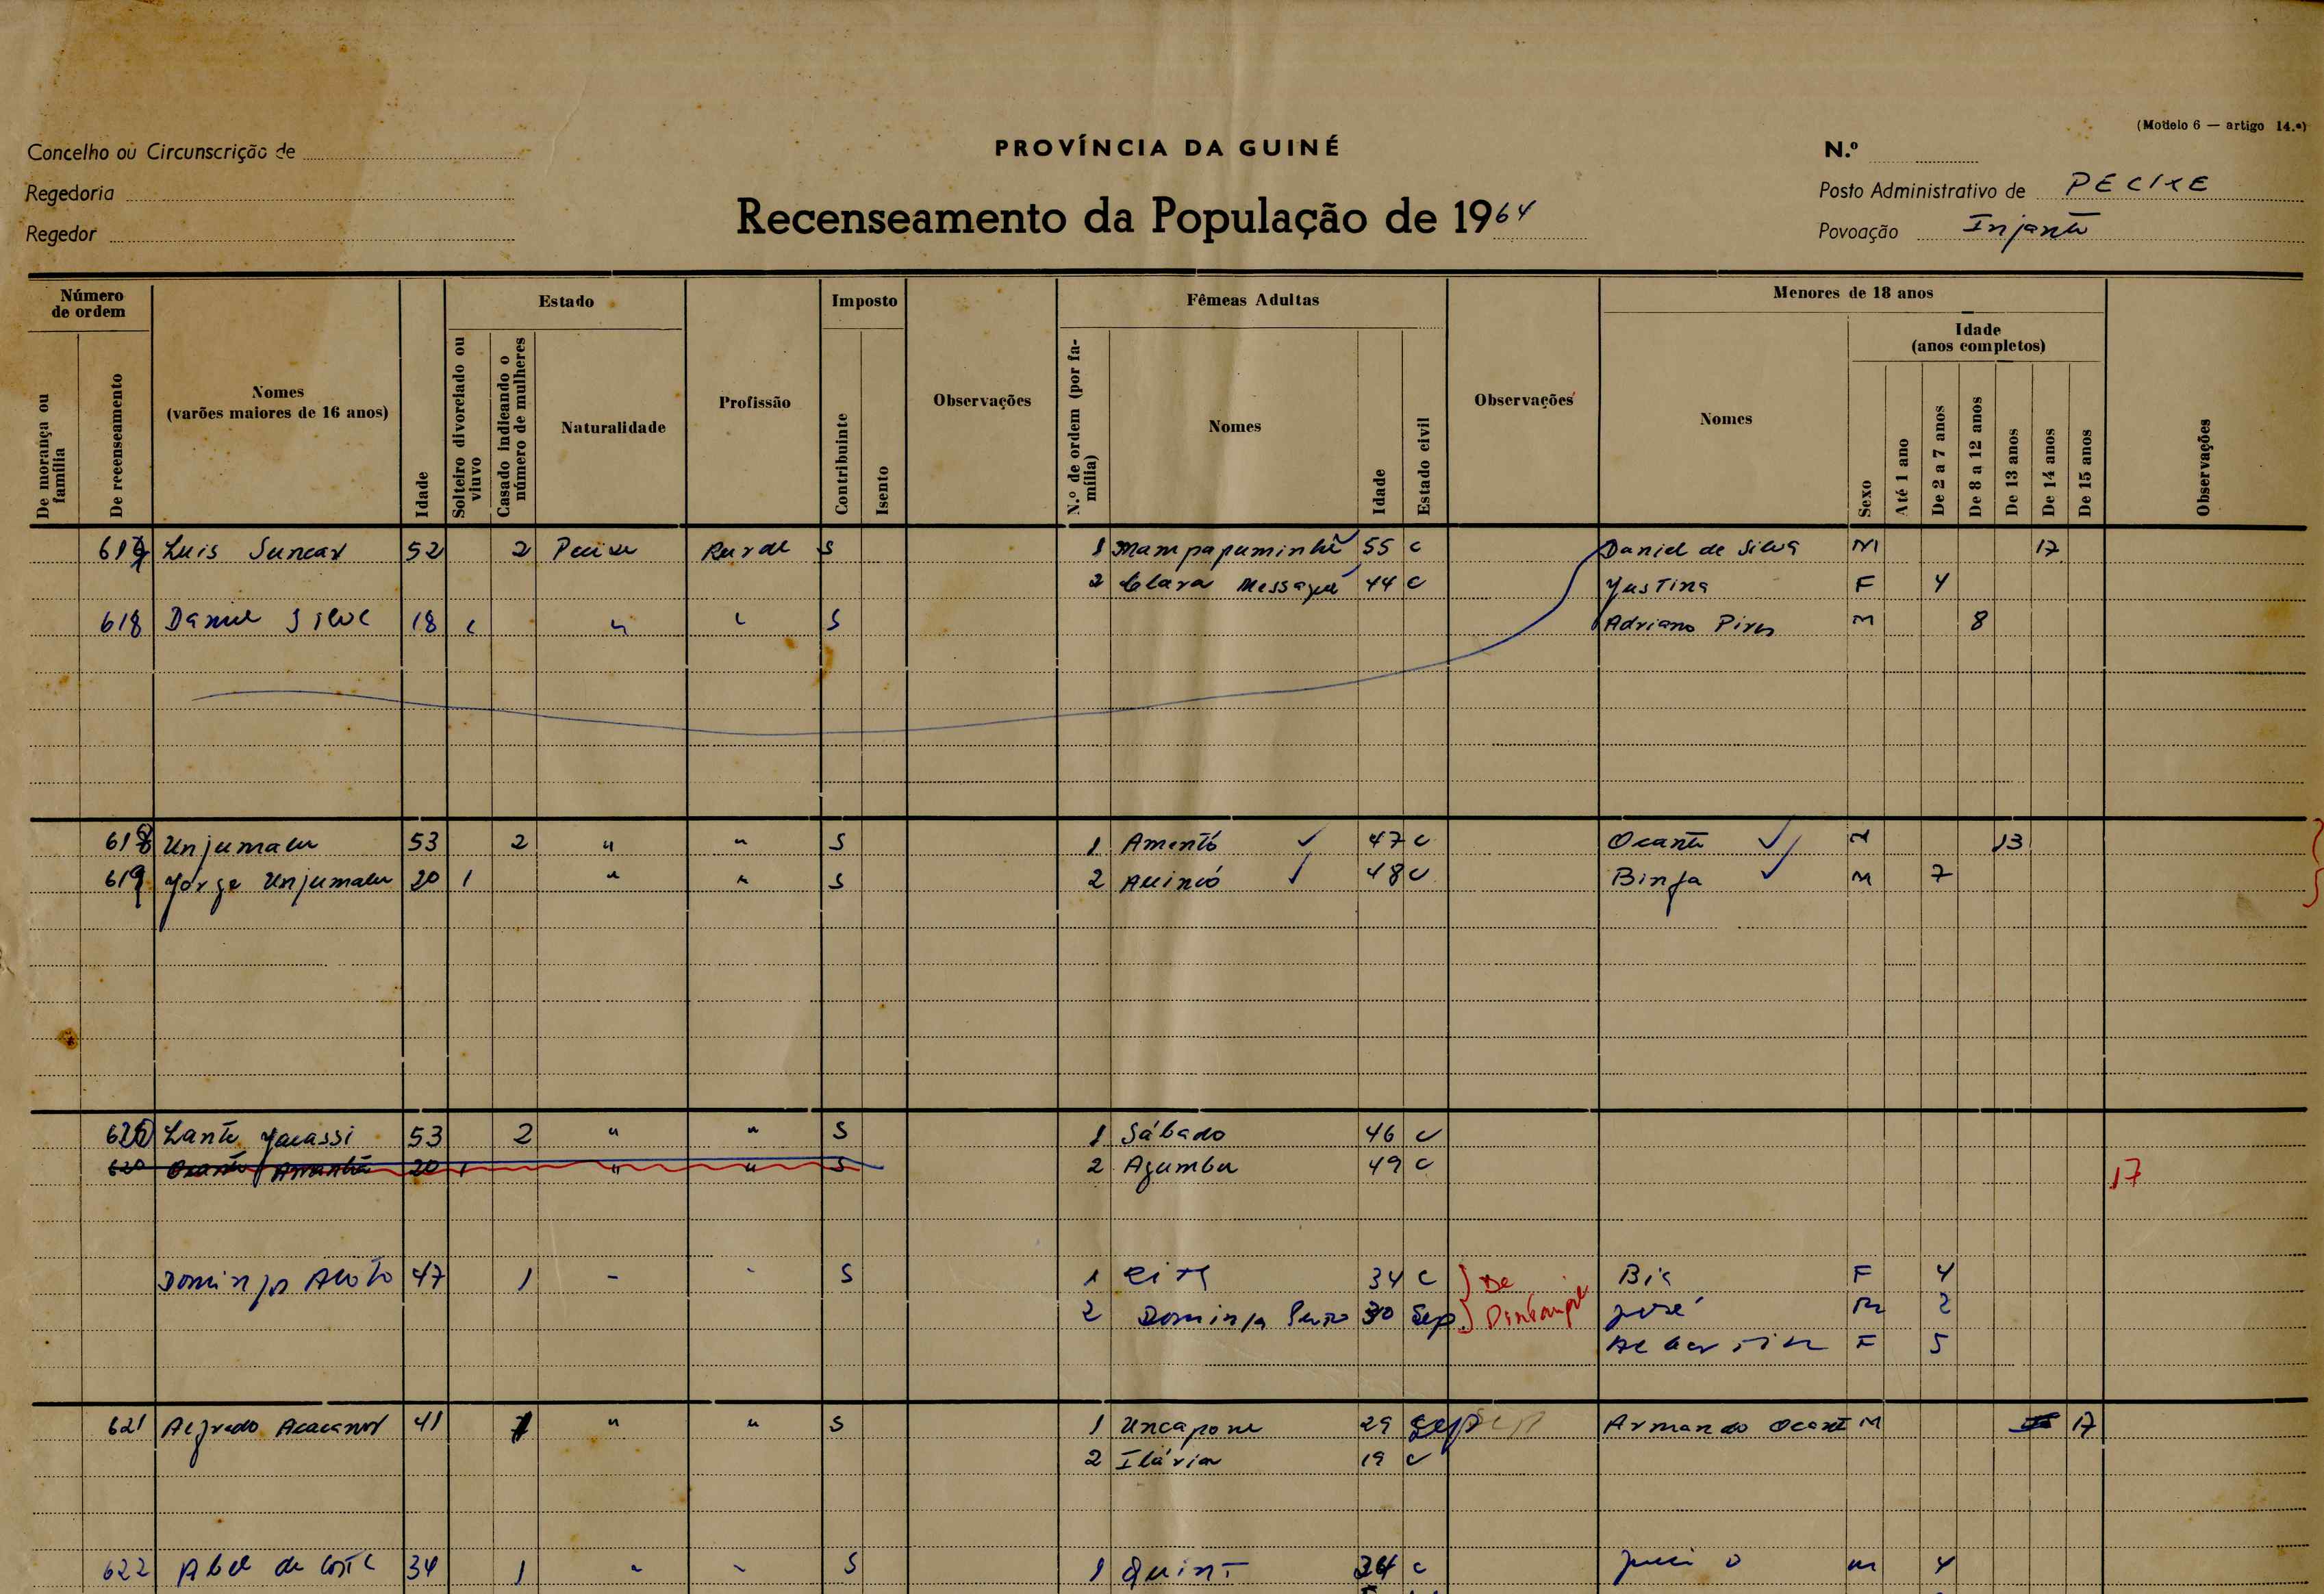 (Modelo 6 — artigo 14.º)
Concelho ou Circunscrição de
PROVÍNCIA DA GUINÉ
N.º
Regedoria
Recenseamento da População de 1964
Posto Administrativo de PECIXE
Regedor
Povoação Injante
Número de ordem
Estado
Imposto
Fêmeas Adultas
Menores de 18 anos
Idade (anos completos)
De morança ou família
De recenseamento
Nomes (varões maiores de 16 anos)
Idade
Solteiro divorciado ou viuvo
Casado indicando o número de mulheres
Naturalidade
Profissão
Contribuinte
Isento
Observações
N.º de ordem (por família)
Nomes
Idade
Estado civil
Observações
Nomes
Sexo
Até 1 ano
De 2 a 7 anos
De 8 a 12 anos
De 13 anos
De 14 anos
De 15 anos
Observações
617 Luis Suncar 52 2 Pecixe Rural S 1 Mampapuminhe 55 C Daniel de Silva M 17
2 Clara 44 C Justina F 4
618 Daniel Silva 18 S Adriano Pires M 8
618 Unjumalu 53 2 " " S 1 Amentó 47 C Ocante M 13
619 Jorge Unjumalu 20 1 " " S 2 48 C Binja M 7
620 Lante 53 2 " " S 1 Sábado 46 C
620 20 1 " " S 2 Agumba 49 C 17
Domingos 47 1 S 1 34 C De Bia F 4
2 Dominga 30 Sep José M 2
F 5
621 Alfredo 41 " " S 1 Uncapone 29 Sep Armando Ocante M 17
2 Ilária 19 C
622 Abel da Costa 34 1 S 1 Quint 34 C M 4